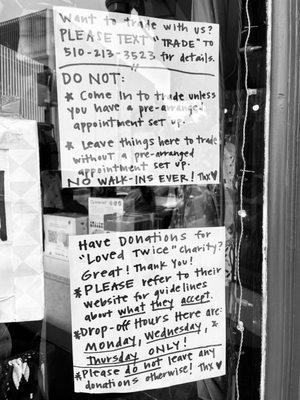 Want to trade with us?
PLEASE TEXT "TRADE" TO
510-213-3523 for details.
DO NOT:
* Come In to trade unless
you have a pre-arranged
appointment set up.
* Leave things here to trade
without a pre-arranged
appointment set up.
NO WALK-INS EVER! Thx♥
Have Donations for
"Loved Twice" charity?
Great! Thank You!
*PLEASE refer to their
website for guidelines
about what they accept.
*Drop-off Hours Here are:
Monday, Wednesday, *
Thursday ONLY!
*Please do not leave any
donations otherwise! Thx♥